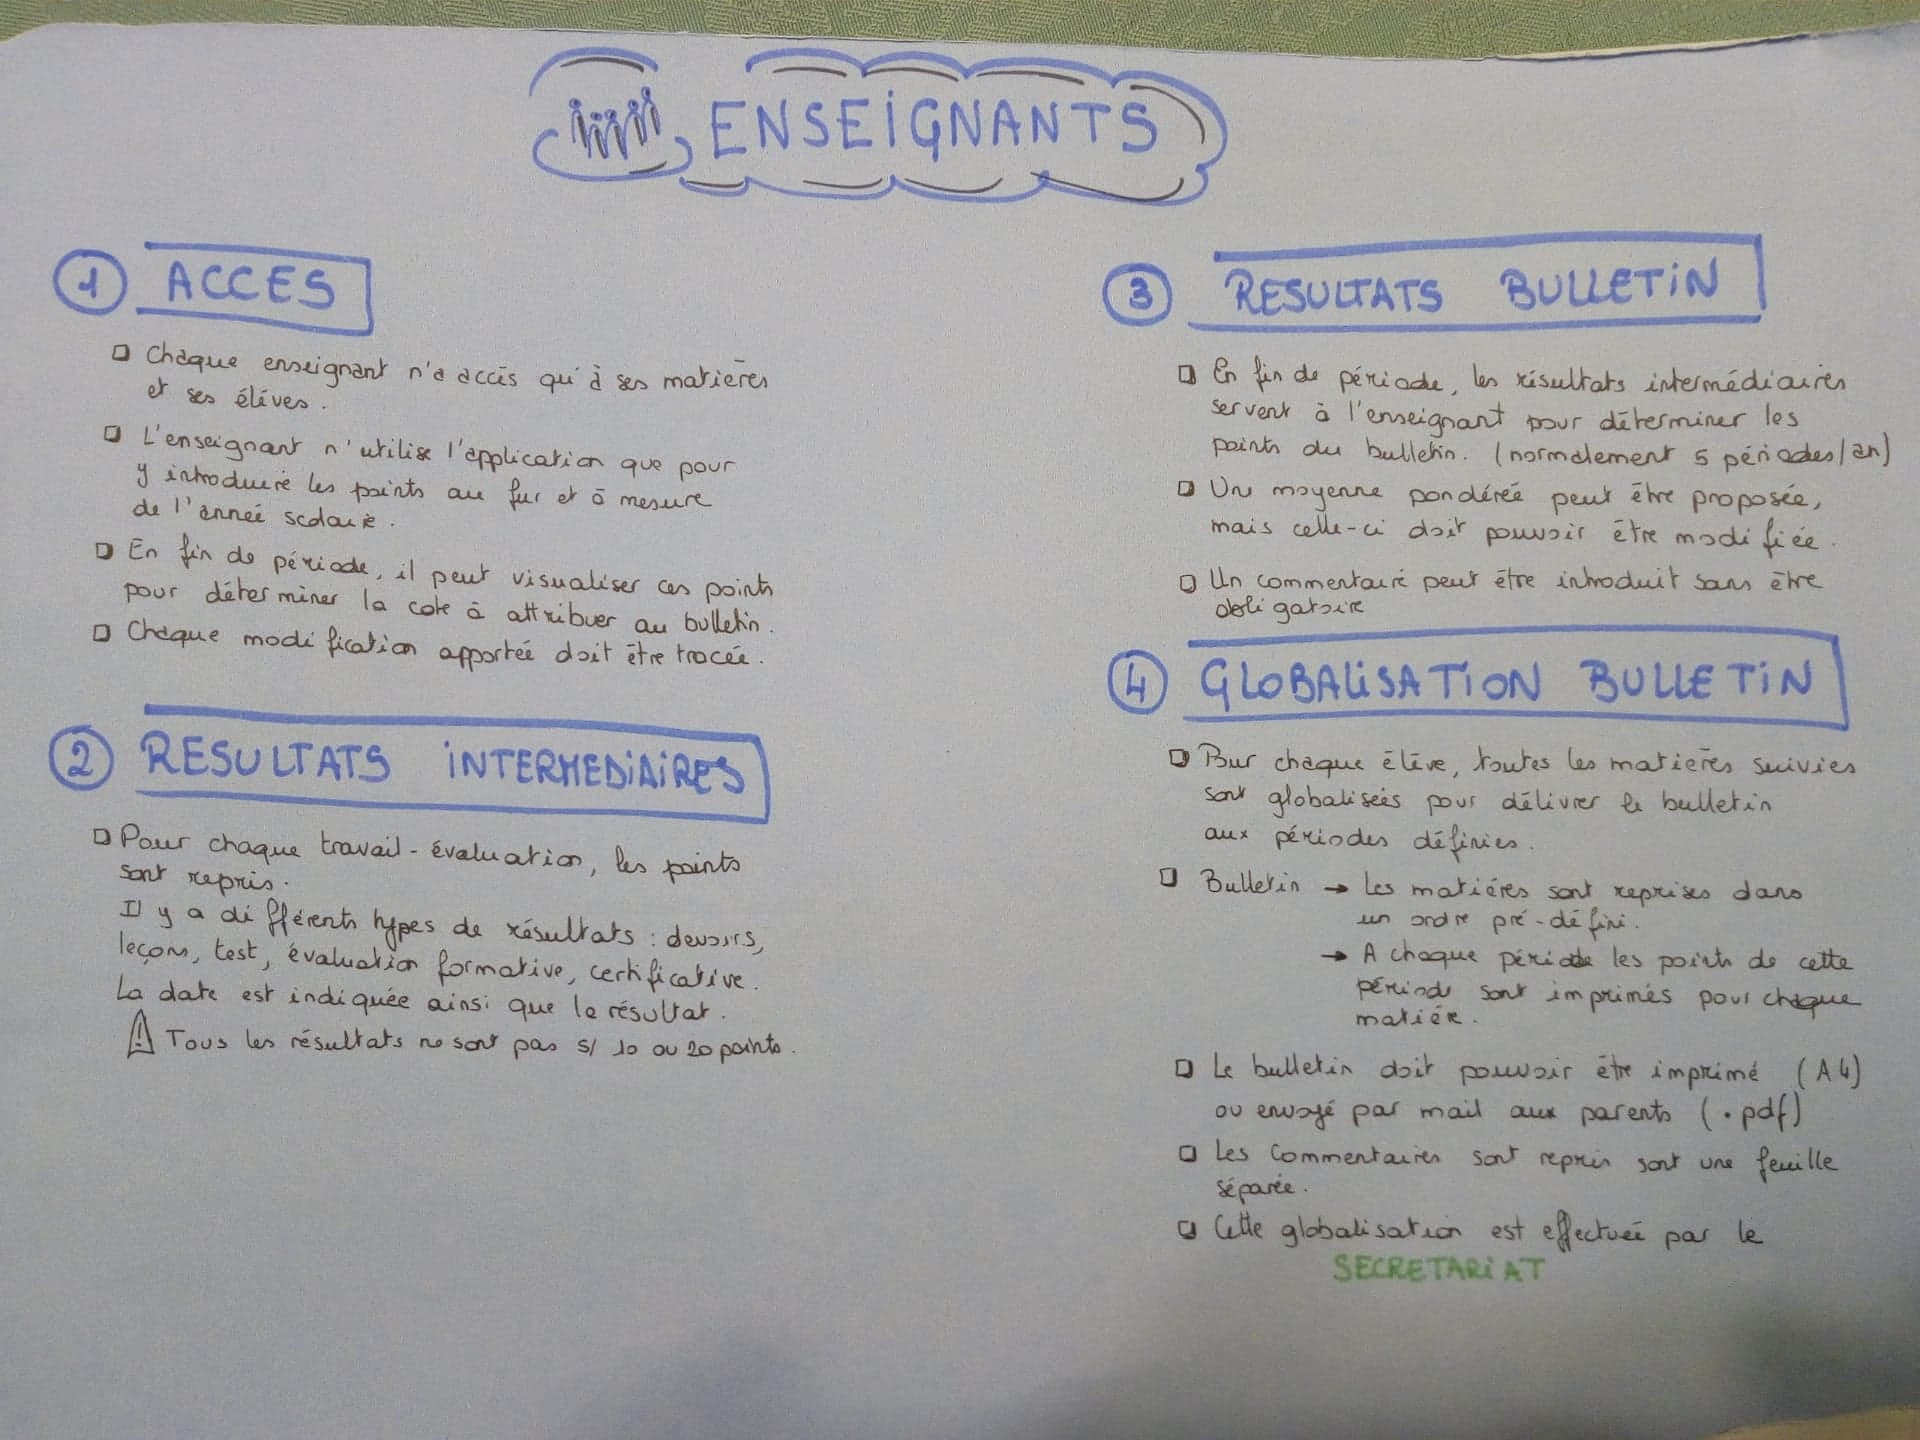 ENSEIGNANTS
1 ACCES
Chaque enseignant n'a accès qu'à ses matières
et ses élèves.
L'enseignant n'utilise l'application que pour
y introduire les points au fur et à mesure
de l'année scolaire.
En fin de période, il peut visualiser ces points
pour déterminer la cote à attribuer au bulletin.
Chaque modification apportée doit être tracée.
2 RESULTATS INTERMEDIAIRES
Pour chaque travail-évaluation, les points
sont repris.
Il y a différents types de résultats : devoirs,
leçons, test, évaluation formative, certificative.
La date est indiquée ainsi que le résultat.
⚠ Tous les résultats ne sont pas s/ 10 ou 20 points.
3 RESULTATS BULLETIN
En fin de période, les résultats intermédiaires
servent à l'enseignant pour déterminer les
points du bulletin. (normalement 5 périodes/an)
Une moyenne pondérée peut être proposée,
mais celle-ci doit pouvoir être modifiée.
Un commentaire peut être introduit sans être
obligatoire
4 GLOBALISATION BULLETIN
Pour chaque élève, toutes les matières suivies
sont globalisées pour délivrer le bulletin
aux périodes définies.
Bulletin → Les matières sont reprises dans
un ordre pré-défini.
→ A chaque période les points de cette
période sont imprimés pour chaque
matière.
Le bulletin doit pouvoir être imprimé (A4)
ou envoyé par mail aux parents (.pdf)
Les commentaires sont repris sont une feuille
séparée.
Cette globalisation est effectuée par le
SECRETARIAT